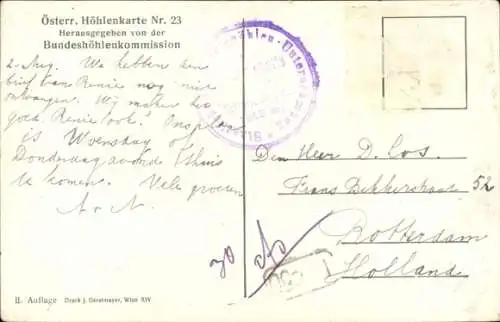 Österr. Höhlenkarte Nr. 23
Herausgegeben von der
Bundeshöhlenkommission
2. Aug. We hebben den
brief van Renie nog niet
ontvangen. Wij maken het
goed. Renie ook?
is Woensdag of
Donderdag avond thuis
te komen. Vele groeten
A. r. N.
Den Heer D. Cos.
Frans Bekkerstraat 52
Rotterdam
Holland
II. Auflage Druck j. Gerstmayer, Wien XIV